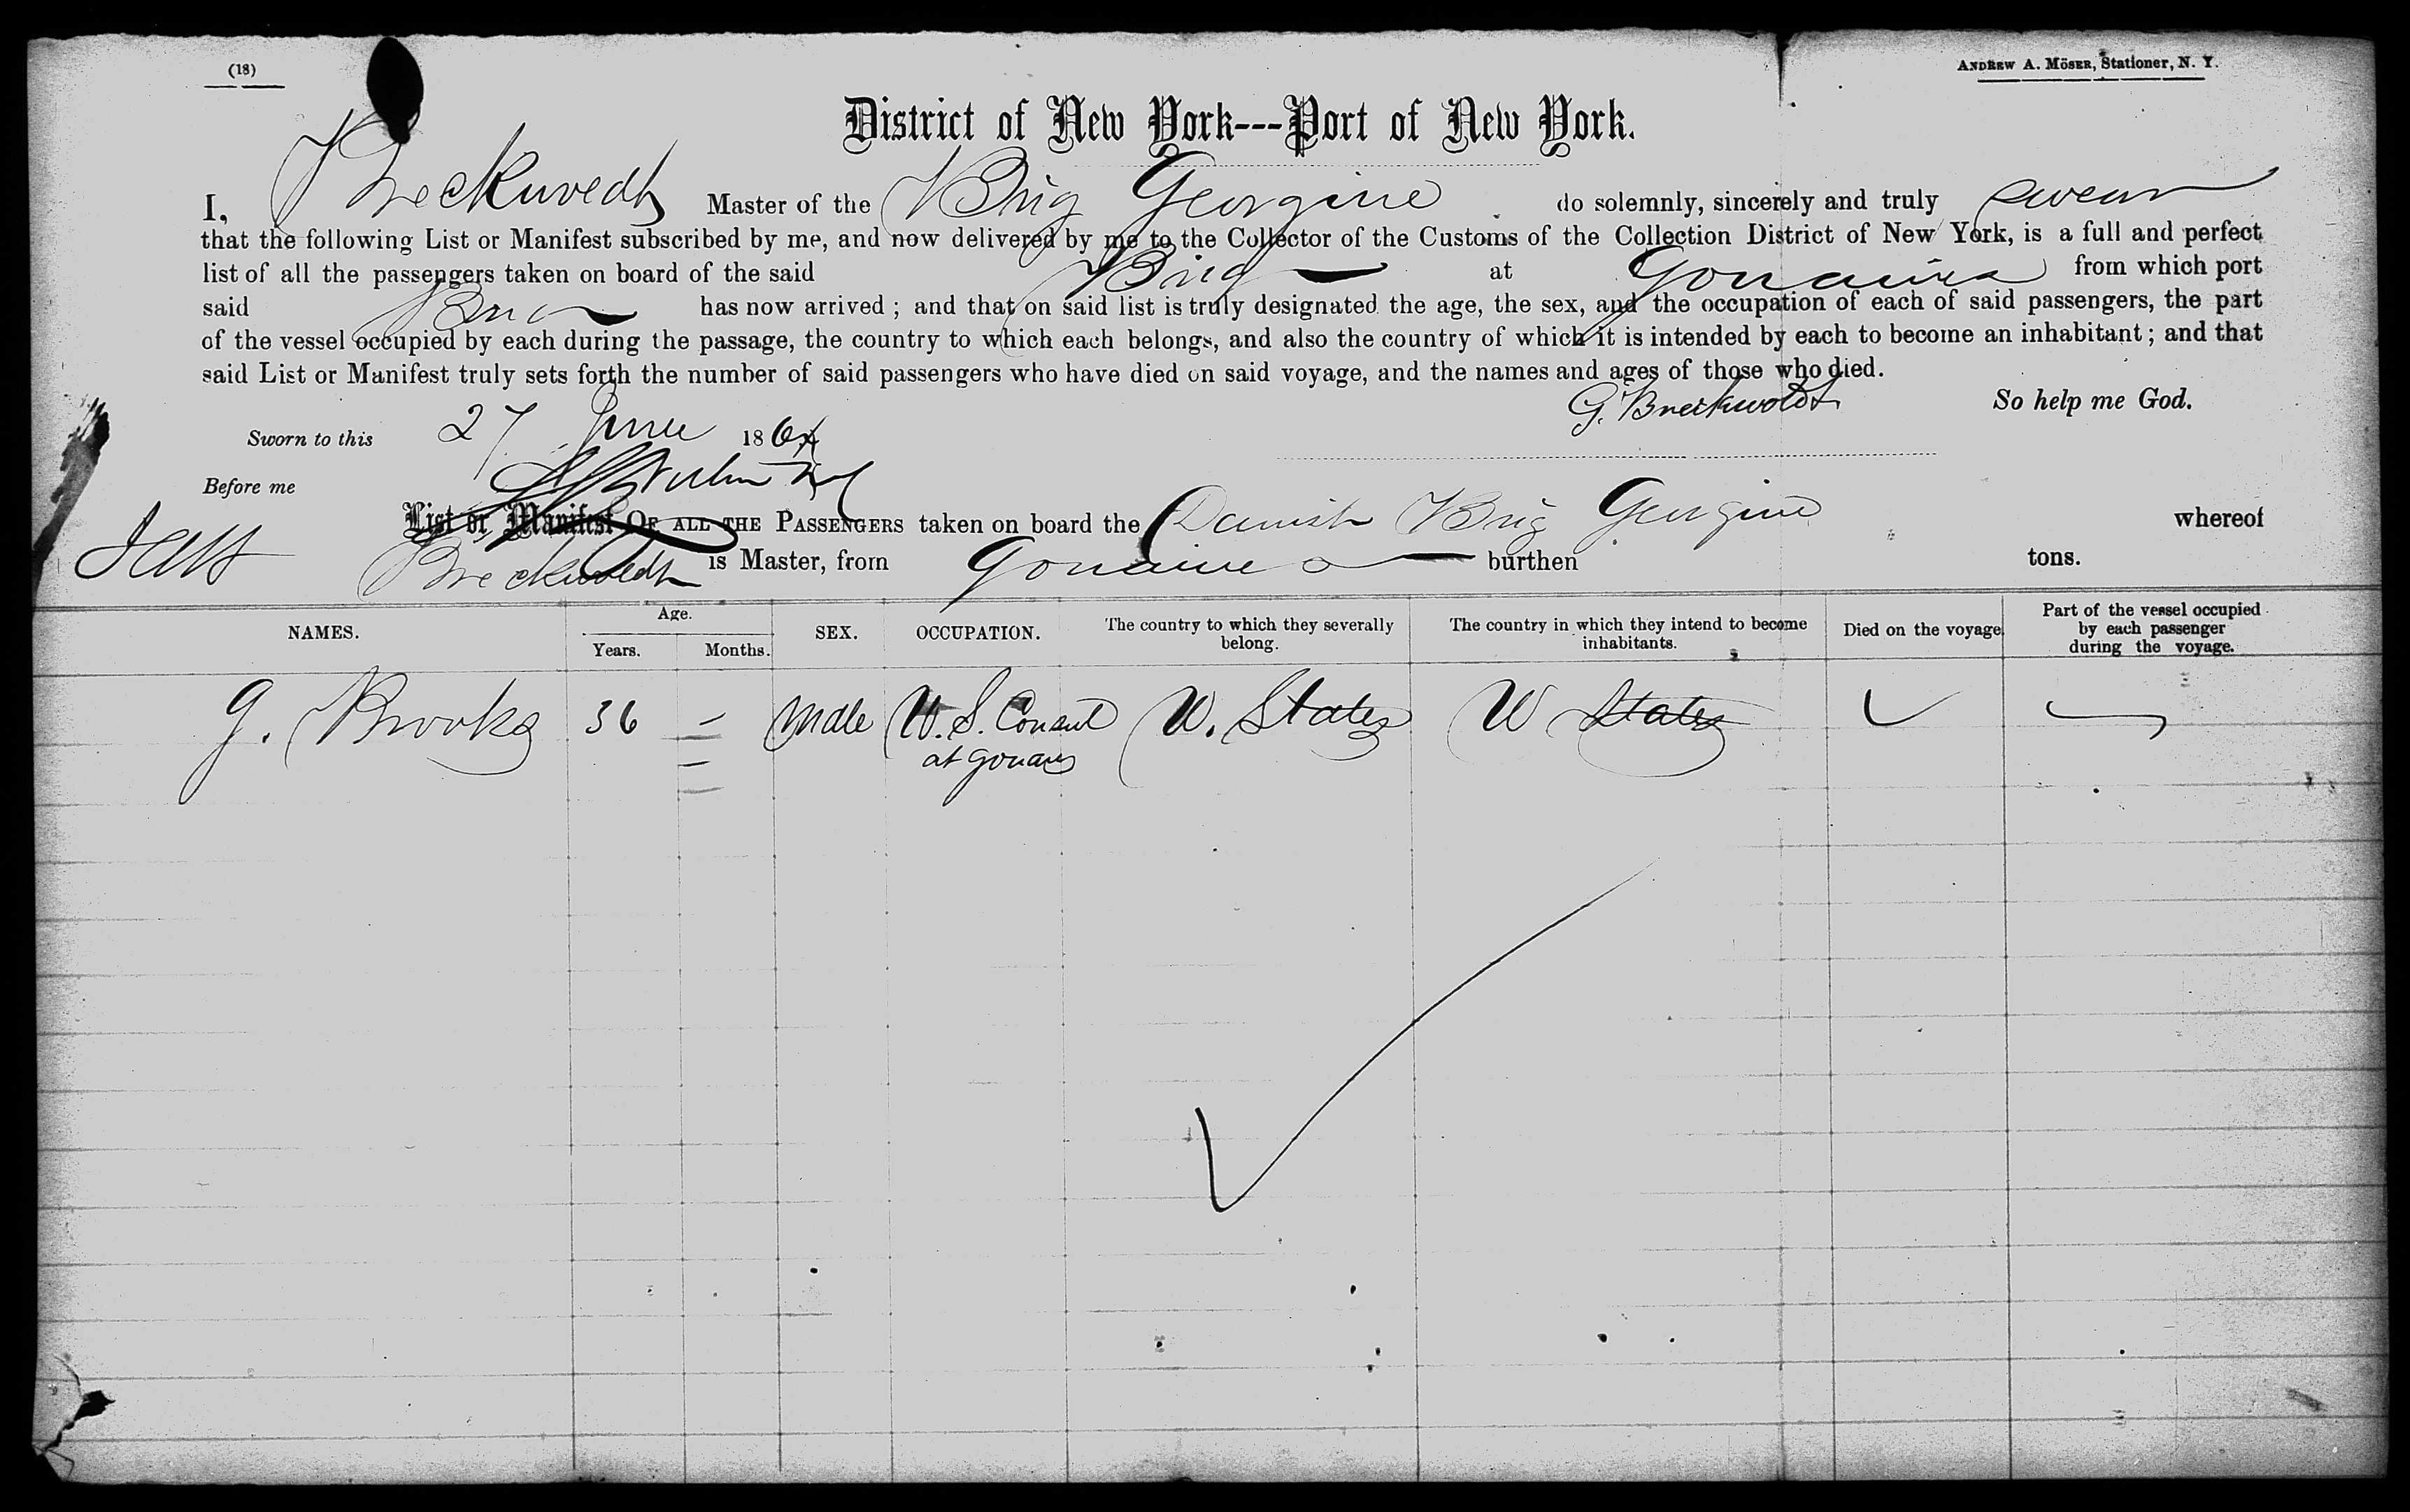 (18)
ANDREW A. MÖSER, Stationer, N. Y.
District of New York---Port of New York.
I, Breckwedt Master of the Brig Georgine do solemnly, sincerely and truly swear
that the following List or Manifest subscribed by me, and now delivered by me to the Collector of the Customs of the Collection District of New York, is a full and perfect
list of all the passengers taken on board of the said Brig at Gonaives from which port
said Brig has now arrived ; and that on said list is truly designated the age, the sex, and the occupation of each of said passengers, the part
of the vessel occupied by each during the passage, the country to which each belongs, and also the country of which it is intended by each to become an inhabitant ; and that
said List or Manifest truly sets forth the number of said passengers who have died on said voyage, and the names and ages of those who died.
G. Breckwoldt So help me God.
Sworn to this 27 June 186
Before me
List or Manifest OF ALL THE PASSENGERS taken on board the Danish Brig Georgine whereof
Breckwedt is Master, from Gonaives burthen tons.
NAMES. Age. Years. Months. SEX. OCCUPATION. The country to which they severally belong. The country in which they intend to become inhabitants. Died on the voyage. Part of the vessel occupied by each passenger during the voyage.
G. Brooks 36 - Male U. S. Consul U. States U States
at